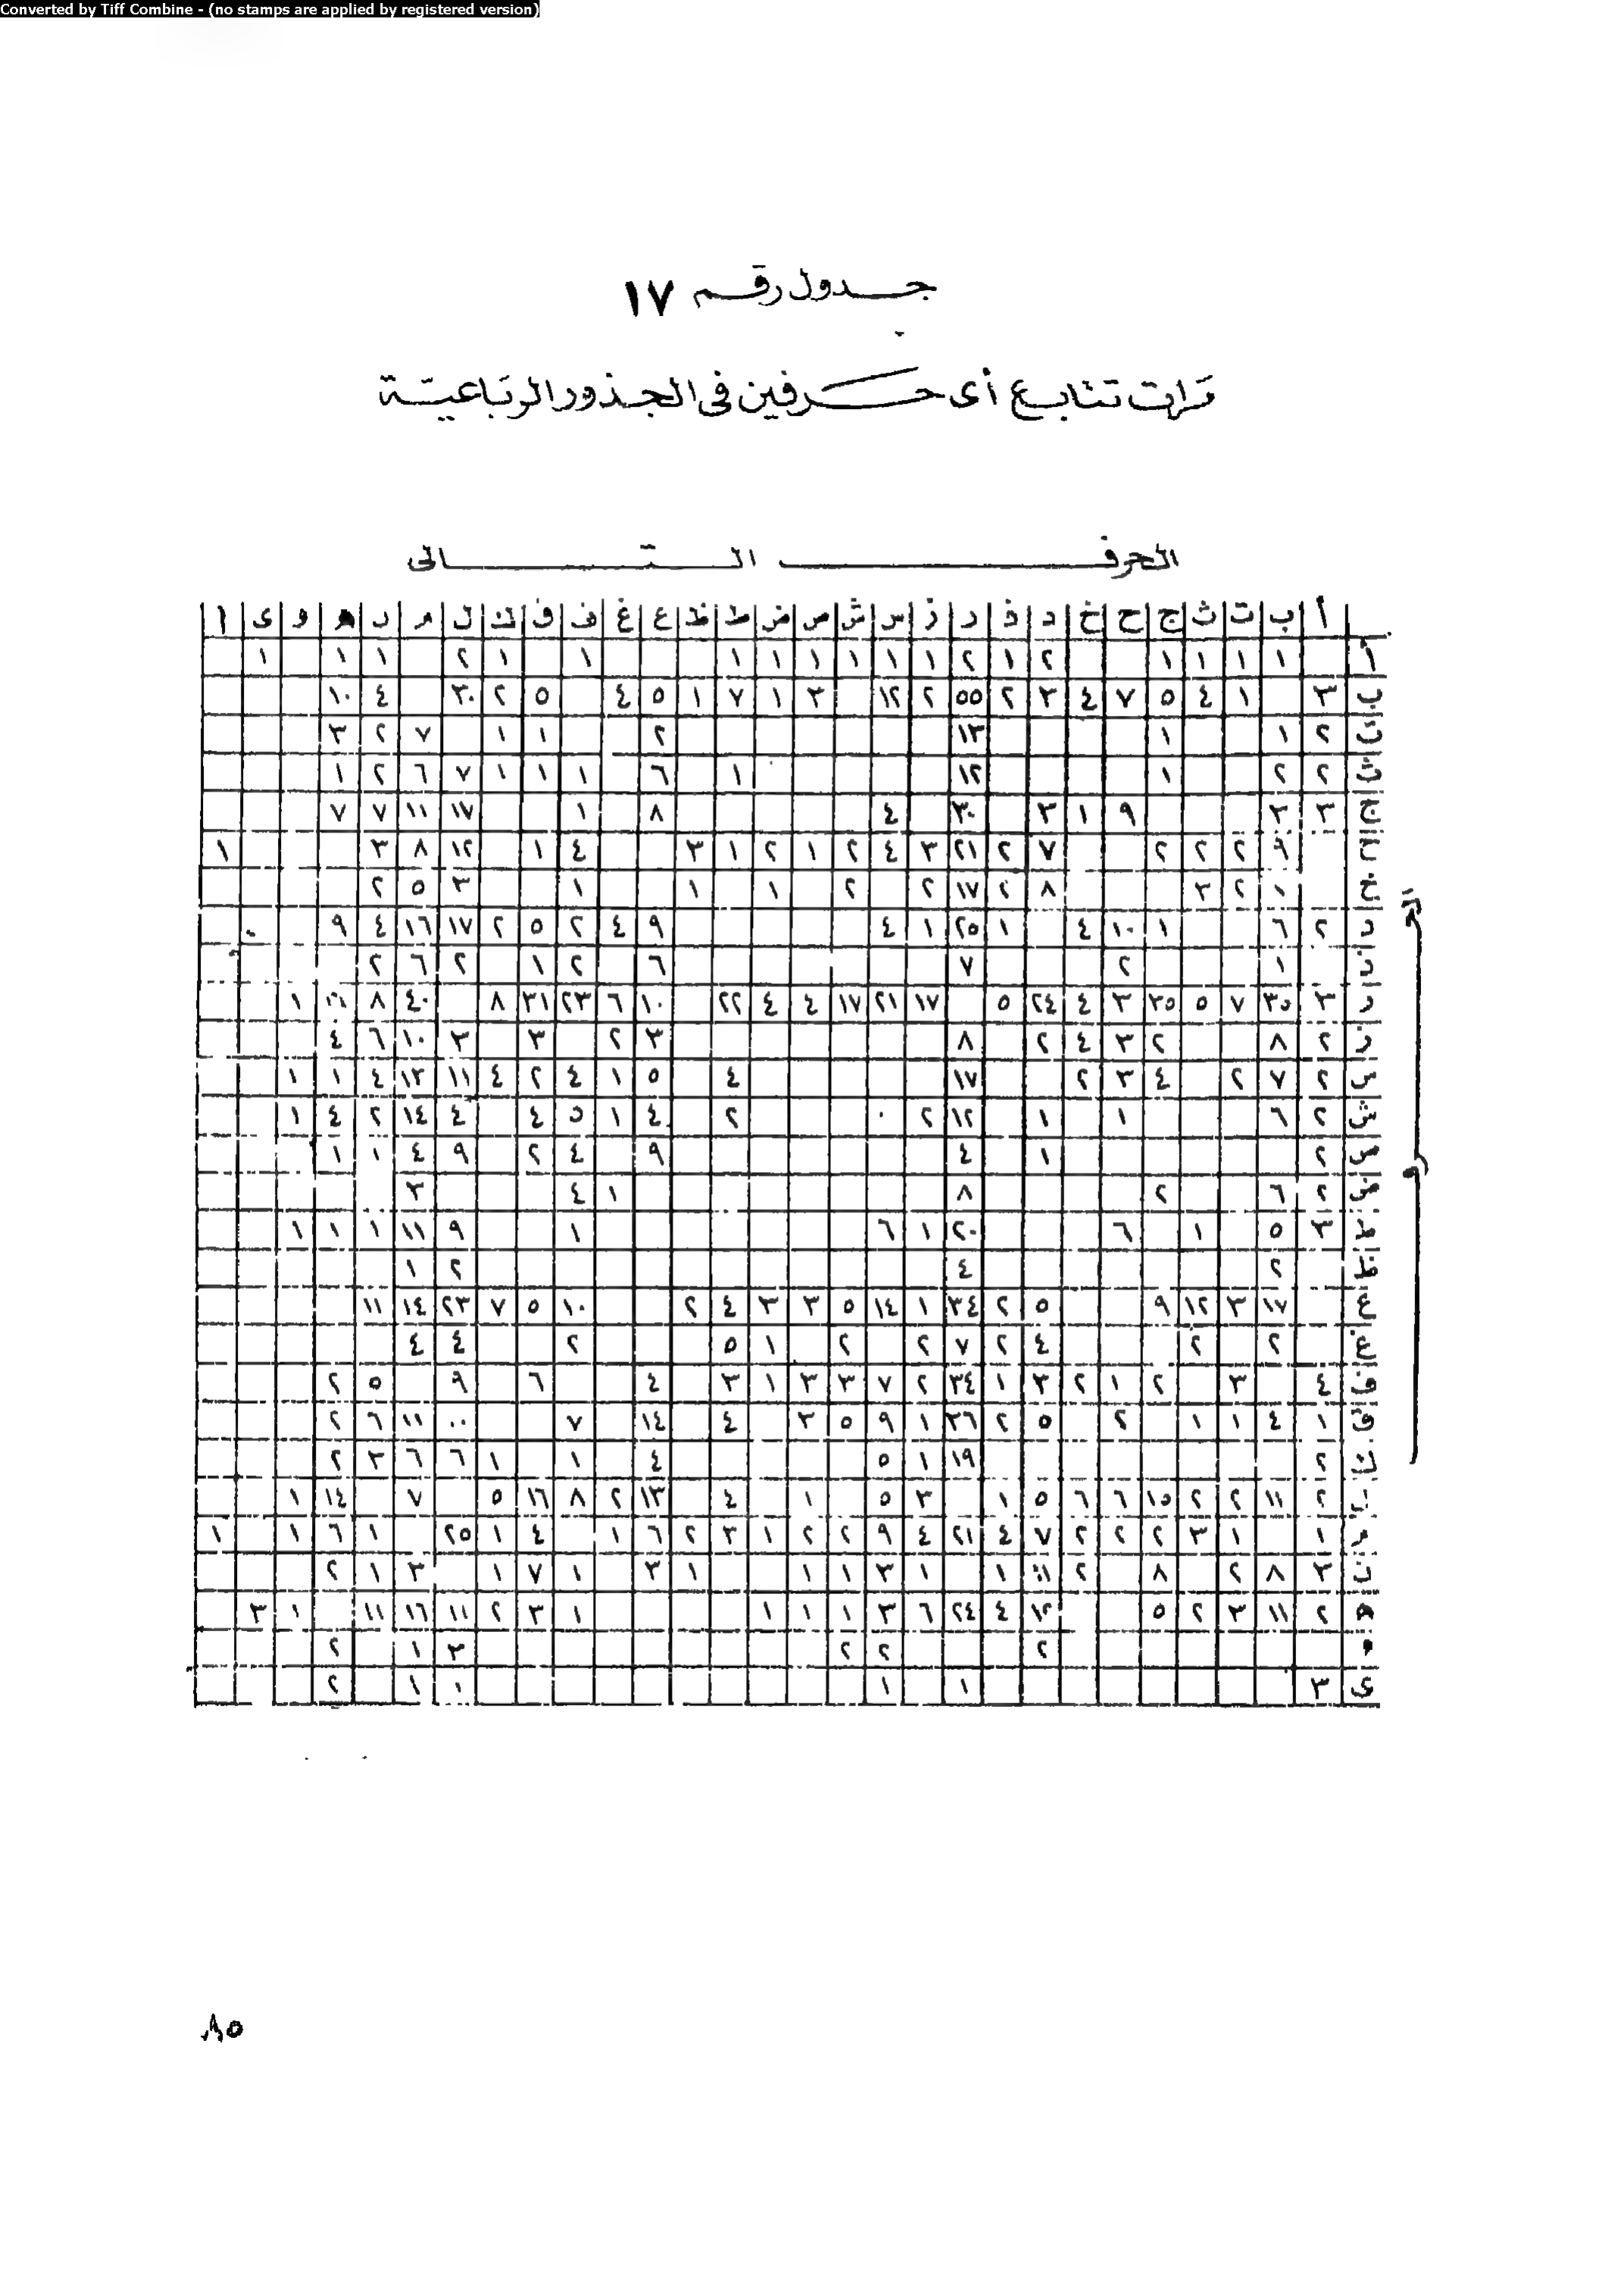 Converted by Tiff Combine - (no stamps are applied by registered version)
جدول رقم ١٧
مرات تتابع أى حرفين فى الجذور الرباعية
الحرف التالى
أ ب ت ث ج ح خ د ذ ر ز س ش ص ض ط ظ ع غ ف ق ك ل م ن ه و ى ا
أ ١ ١ ١ ١ ٢ ١ ٢ ١ ١ ١ ١ ١ ١ ١ ١ ٢ ١ ١ ١
ب ٣ ١ ٤ ٥ ٧ ٤ ٣ ٢ ٥٥ ٢ ١٢ ٣ ١ ٧ ١ ٥ ٤ ٥ ٢ ٣٠ ٤ ١٠
ت ٢ ١ ١ ١٣ ٢ ١ ١ ٧ ٢ ٣
ث ٢ ٢ ١ ١٢ ١ ٦ ١ ١ ١ ٧ ٦ ٢ ١
ج ٣ ٣ ٩ ١ ٣ ٣٠ ٤ ٨ ١ ١٧ ١١ ٧ ٧
ح ٩ ٢ ٢ ٢ ٧ ٢ ٢١ ٣ ٤ ٢ ١ ٢ ١ ٣ ٤ ١ ١٢ ٨ ٣ ١
خ ١ ٢ ٣ ٨ ٢ ١٧ ٢ ٢ ١ ١ ١ ٣ ٥ ٢
د ٢ ٦ ١ ١٠ ٤ ١ ٢٥ ١ ٤ ٩ ٤ ٢ ٥ ٢ ١٧ ١٦ ٤ ٩
ذ ١ ٢ ٧ ٦ ٢ ١ ٢ ٦ ٢
ر ٣ ٣٥ ٧ ٥ ٢٥ ٣ ٤ ٢٤ ٥ ١٧ ٢١ ١٧ ٤ ٤ ٢٢ ١٠ ٦ ٢٣ ٢١ ٨ ٤٠ ٨ ١
ز ٢ ٨ ٢ ٣ ٤ ٢ ٨ ٣ ٢ ٣ ٣ ١٠ ٦ ٤
س ٢ ٧ ٢ ٤ ٣ ٢ ١٧ ٤ ٥ ١ ٤ ٢ ٤ ١١ ١٢ ٤ ١ ١
ش ٢ ٦ ١ ١ ١٢ ٢ ٢ ٤ ١ ٥ ٤ ٤ ١٤ ٢ ٤ ١
ص ٢ ١ ٤ ٩ ٤ ٢ ٩ ٤ ١ ١
ض ٢ ٦ ٢ ٨ ١ ٤ ٣
ط ٣ ٥ ١ ٦ ٢٠ ١ ٦ ١ ٩ ١١ ١ ١ ١
ظ ٢ ٤ ٢ ١
ع ١٧ ٣ ١٢ ٩ ٥ ٢ ٣٤ ١ ١٤ ٥ ٣ ٣ ٤ ٢ ١٠ ٥ ٧ ٢٣ ١٤ ١١
غ ٢ ٢ ٤ ٢ ٧ ٢ ٢ ١ ٥ ٢ ٤ ٤
ف ٤ ٣ ٢ ١ ٢ ٣ ١ ٣٤ ٢ ٧ ٣ ٣ ١ ٣ ٤ ٦ ٩ ٥ ٢
ق ١ ٤ ١ ١ ٢ ٥ ٢ ٢٦ ١ ٩ ٥ ٣ ٤ ١٤ ٧ ١١ ٦ ٢
ك ٢ ١٩ ١ ٥ ٤ ١ ١ ٦ ٦ ٣ ٢
ل ٢ ١١ ٢ ٢ ١٥ ٦ ٦ ٥ ١ ٣ ٥ ١ ٤ ١٣ ٢ ٨ ١٦ ٥ ٧ ١٤ ١
م ١ ١ ٣ ٢ ٢ ٢ ٧ ٤ ٢١ ٤ ٩ ٢ ٢ ١ ٣ ٢ ٦ ١ ٤ ١ ٢٥ ١ ٦ ١ ١
ن ٣ ٨ ٢ ٨ ٢ ١١ ١ ١ ٣ ١ ١ ١ ٣ ١ ٧ ١ ٣ ١ ٢
ه ٢ ١١ ٣ ٢ ٥ ١٢ ٤ ٢٤ ٦ ٣ ١ ١ ١ ١ ٣ ٢ ١١ ١٦ ١١ ١ ٣
و ٢ ٢ ٢ ٣ ١ ٢
ى ٣ ١ ١ ١ ١ ٢
٨٥